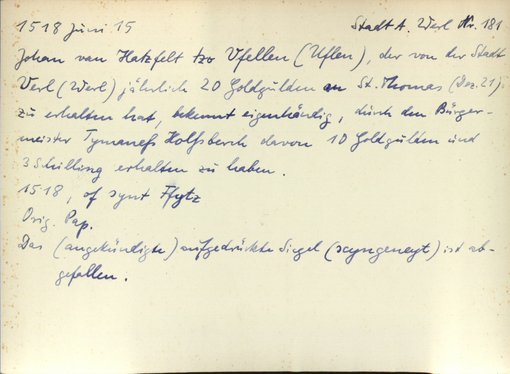 1518 Juni 15 Stadt A. Werl Nr. 181
Johan van Hatzfelt tzo Vfellen (Uflen), der von der Stadt
Verl (Werl) jährlich 20 Goldgulden an St. Thomas (Dez. 21)
zu erhalten hat, bekennt eigenhändig, durch den Bürger-
meister Tymanefs Holfsberch davon 10 Goldgulden und
3 Schilling erhalten zu haben.
1518, of synt Ffytz
Orig. Pap.
Das (angekündigte) aufgedrückte Siegel (seyngeneyt) ist ab-
gefallen.